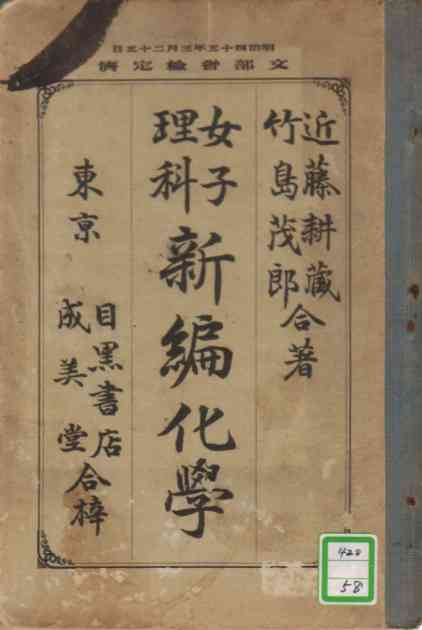 明治四十五年三月二十五日
文部省檢定濟
近藤耕藏
竹島茂郎
合著
女子
理科
新編化學
東京
目黒書店
成美堂
合梓
420
58